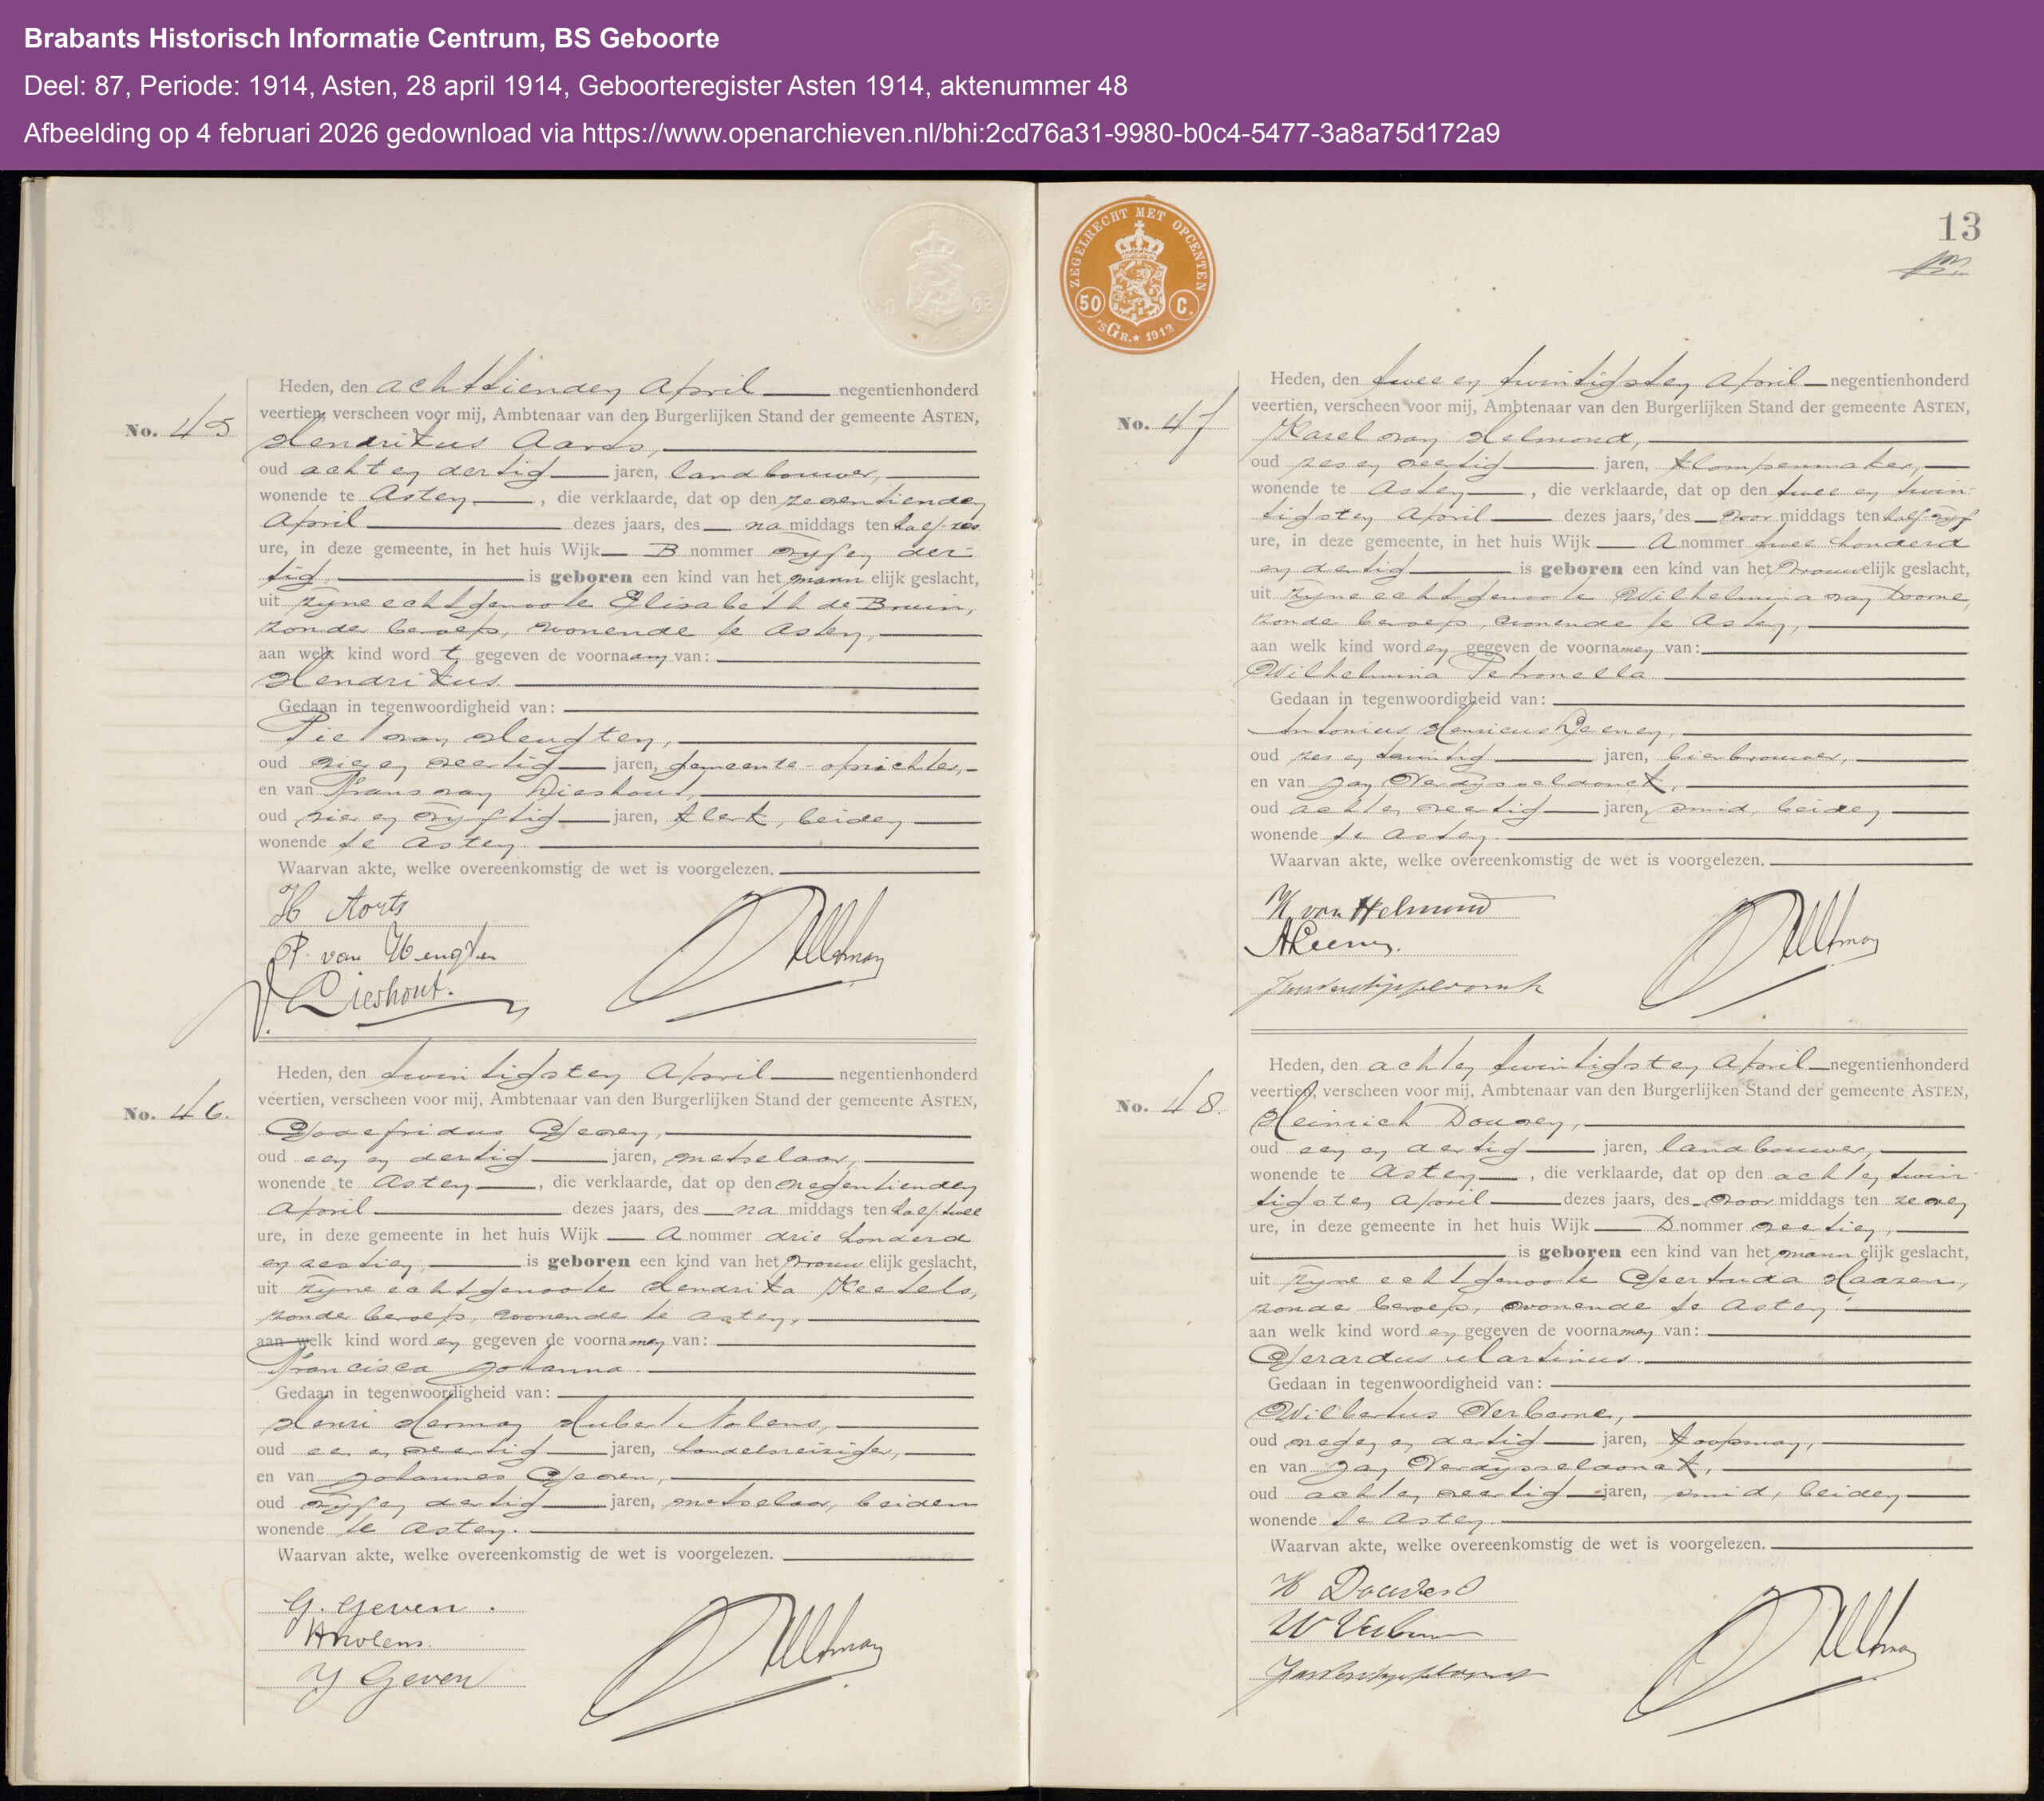 Brabants Historisch Informatie Centrum, BS Geboorte
Deel: 87, Periode: 1914, Asten, 28 april 1914, Geboorteregister Asten 1914, aktenummer 48
Afbeelding op 4 februari 2026 gedownload via https://www.openarchieven.nl/bhi:2cd76a31-9980-b0c4-5477-3a8a75d172a9
No. 45
Heden, den achttienden April negentienhonderd
veertien, verscheen voor mij, Ambtenaar van den Burgerlijken Stand der gemeente ASTEN,
Hendrikus Aarts,
oud acht en dertig jaren, landbouwer,
wonende te Asten, die verklaarde, dat op den zeventienden
April dezes jaars, des na middags ten half zes
ure, in deze gemeente, in het huis Wijk B nommer vijf en der-
tig, is geboren een kind van het mannelijk geslacht,
uit zijne echtgenoote Elisabeth de Bruin,
zonder beroep, wonende te Asten,
aan welk kind wordt gegeven de voornaam van:
Hendrikus.
Gedaan in tegenwoordigheid van:
Piet van Hengten,
oud vier en veertig jaren, gemeente-opzichter,
en van Frans van Lieshout,
oud vier en vijftig jaren, klerk, beiden
wonende te Asten.
Waarvan akte, welke overeenkomstig de wet is voorgelezen.
H Aorts
P. van Hengten
v. Lieshout.
No. 46.
Heden, den twintigsten April negentienhonderd
veertien, verscheen voor mij, Ambtenaar van den Burgerlijken Stand der gemeente ASTEN,
Godefridus Geven,
oud een en dertig jaren, metselaar,
wonende te Asten, die verklaarde, dat op den negentienden
April dezes jaars, des na middags ten half twee
ure, in deze gemeente in het huis Wijk A nommer drie honderd
en zestien, is geboren een kind van het vrouwelijk geslacht,
uit zijne echtgenoote Hendrika Keetels,
zonder beroep, wonende te Asten,
aan welk kind worden gegeven de voornamen van:
Francisca Johanna.
Gedaan in tegenwoordigheid van:
Henri Herman Hubert Nolens,
oud een en veertig jaren, handelsreiziger,
en van Johannes Geven,
oud vijf en dertig jaren, metselaar, beiden
wonende te Asten.
Waarvan akte, welke overeenkomstig de wet is voorgelezen.
G. Geven.
HNolens.
J Geven
ZEGELRECHT MET OPCENTEN
50 C.
'sGR. 1912
13
No. 47
Heden, den twee en twintigsten April negentienhonderd
veertien, verscheen voor mij, Ambtenaar van den Burgerlijken Stand der gemeente ASTEN,
Karel van Helmond,
oud zes en veertig jaren, klompenmaker,
wonende te Asten, die verklaarde, dat op den twee en twin-
tigsten April dezes jaars, des voor middags ten half vijf
ure, in deze gemeente, in het huis Wijk A nommer twee honderd
en dertig is geboren een kind van het vrouwelijk geslacht,
uit zijne echtgenoote Wilhelmina van Doorne,
zonder beroep, wonende te Asten,
aan welk kind worden gegeven de voornamen van:
Wilhelmina Petronella.
Gedaan in tegenwoordigheid van:
Antonius Henricus
oud zes en twintig jaren, bierbrouwer,
en van Jan Verdijsseldonck,
oud acht en veertig jaren, smid, beiden
wonende te Asten.
Waarvan akte, welke overeenkomstig de wet is voorgelezen.
K van Helmond
No. 48.
Heden, den acht en twintigsten April negentienhonderd
veertien, verscheen voor mij, Ambtenaar van den Burgerlijken Stand der gemeente ASTEN,
Heinrich Douven,
oud een en dertig jaren, landbouwer,
wonende te Asten, die verklaarde, dat op den acht en twin-
tigsten April dezes jaars, des voor middags ten zeven
ure, in deze gemeente in het huis Wijk D nommer veertien,
is geboren een kind van het mannelijk geslacht,
uit zijne echtgenoote Geertruda Haazen,
zonder beroep, wonende te Asten
aan welk kind worden gegeven de voornamen van:
Gerardus Martinus.
Gedaan in tegenwoordigheid van:
Wilbertus Verberne,
oud negen en dertig jaren, koopman,
en van Jan Verdijsseldonck,
oud acht en veertig jaren, smid, beiden
wonende te Asten.
Waarvan akte, welke overeenkomstig de wet is voorgelezen.
H Douven
W Verberne